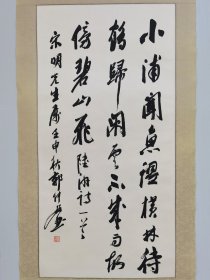 小浦聞魚躍横林待
鶴歸閑雲不成雨故
傍碧山飛 陸游詩一首
宋明先生属 壬申秋 郭